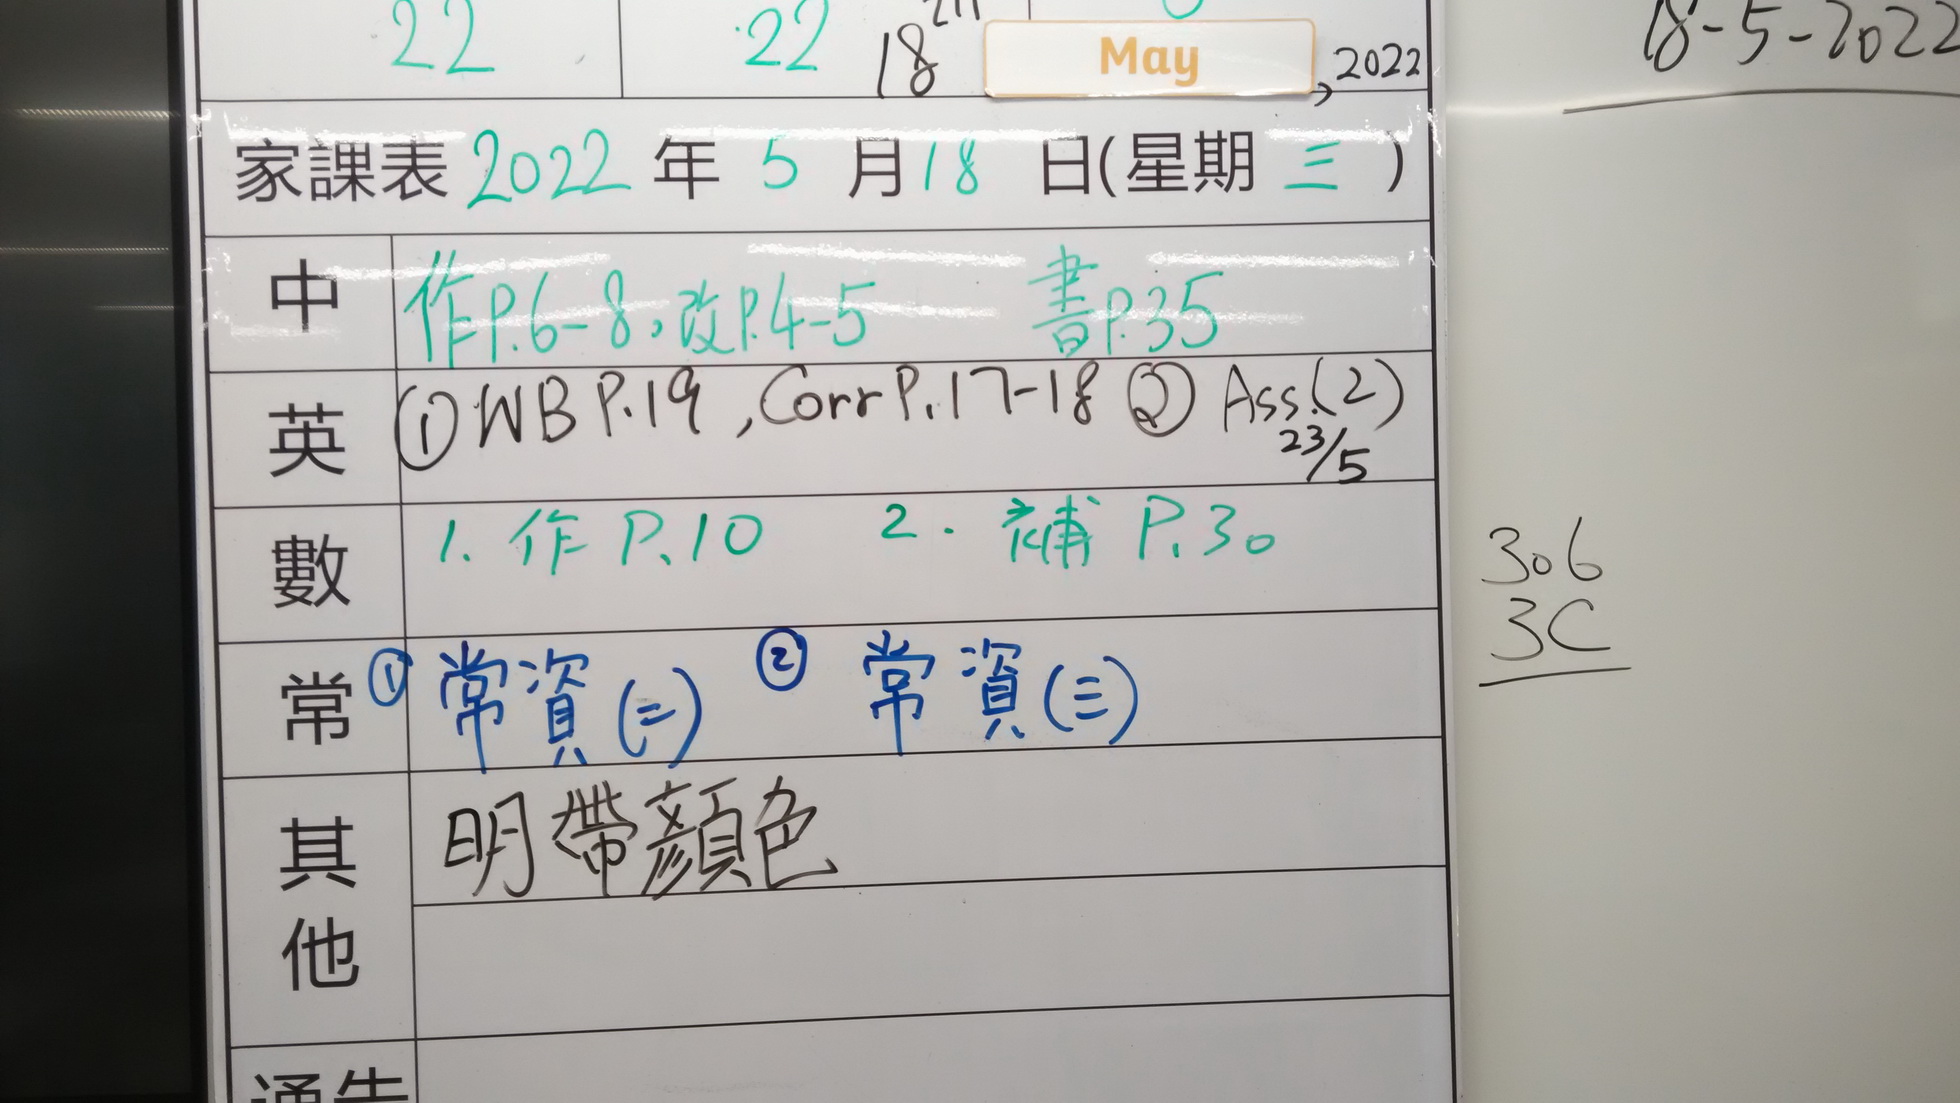 22 22
18 May, 2022
18-5-2022
家課表 2022 年 5 月 18 日(星期 三 )
中 作P.6-8,改P.4-5 書P.35
英 ①WB P.19, Corr P.17-18 ② Ass.(2)
23/5
數 1. 作 P.10 2. 補 P.30
常 ① 常資(二) ② 常資(三)
其他 明帶顏色
通告
306
3C